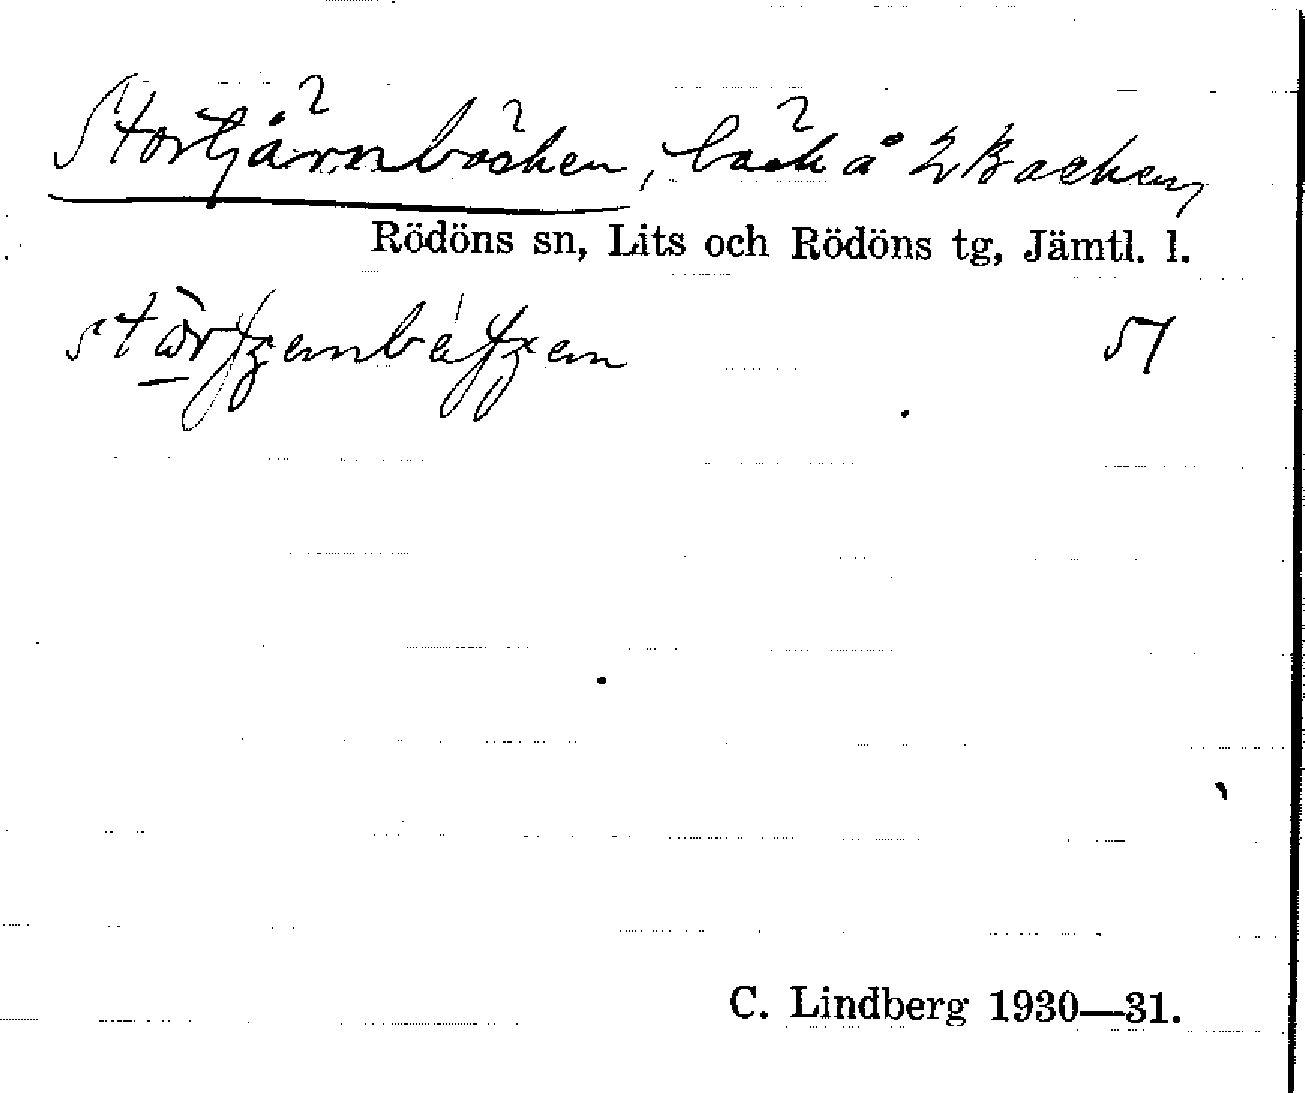 Stortjärnbäcken, bäck å 2 Backen,
Rödöns sn, Lits och Rödöns tg, Jämtl. l.
57
C. Lindberg 1930—31.